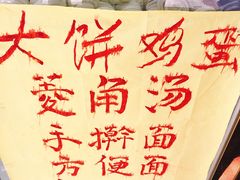 大饼鸡蛋
菱角汤
手擀面
方便面